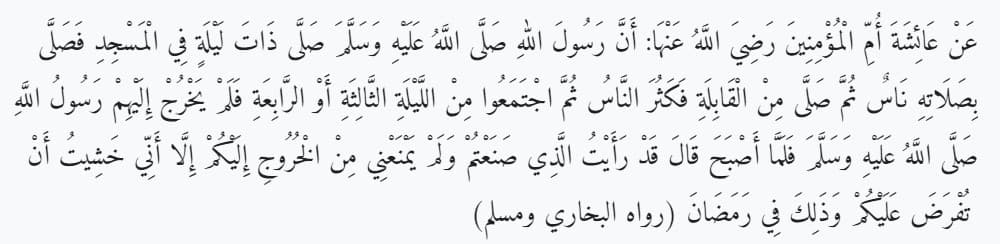 عَنْ عَائِشَةَ أُمِّ الْمُؤْمِنِينَ رَضِيَ اللَّهُ عَنْهَا: أَنَّ رَسُولَ اللهِ صَلَّى اللَّهُ عَلَيْهِ وَسَلَّمَ صَلَّى ذَاتَ لَيْلَةٍ فِي الْمَسْجِدِ فَصَلَّى
بِصَلَاتِهِ نَاسٌ ثُمَّ صَلَّى مِنْ الْقَابِلَةِ فَكَثُرَ النَّاسُ ثُمَّ اجْتَمَعُوا مِنْ اللَّيْلَةِ الثَّالِثَةِ أَوْ الرَّابِعَةِ فَلَمْ يَخْرُجْ إِلَيْهِمْ رَسُولُ اللَّهِ
صَلَّى اللَّهُ عَلَيْهِ وَسَلَّمَ فَلَمَّا أَصْبَحَ قَالَ قَدْ رَأَيْتُ الَّذِي صَنَعْتُمْ وَلَمْ يَمْنَعْنِي مِنْ الْخُرُوجِ إِلَيْكُمْ إِلَّا أَنِّي خَشِيتُ أَنْ
تُفْرَضَ عَلَيْكُمْ وَذَلِكَ فِي رَمَضَانَ (رواه البخاري ومسلم)